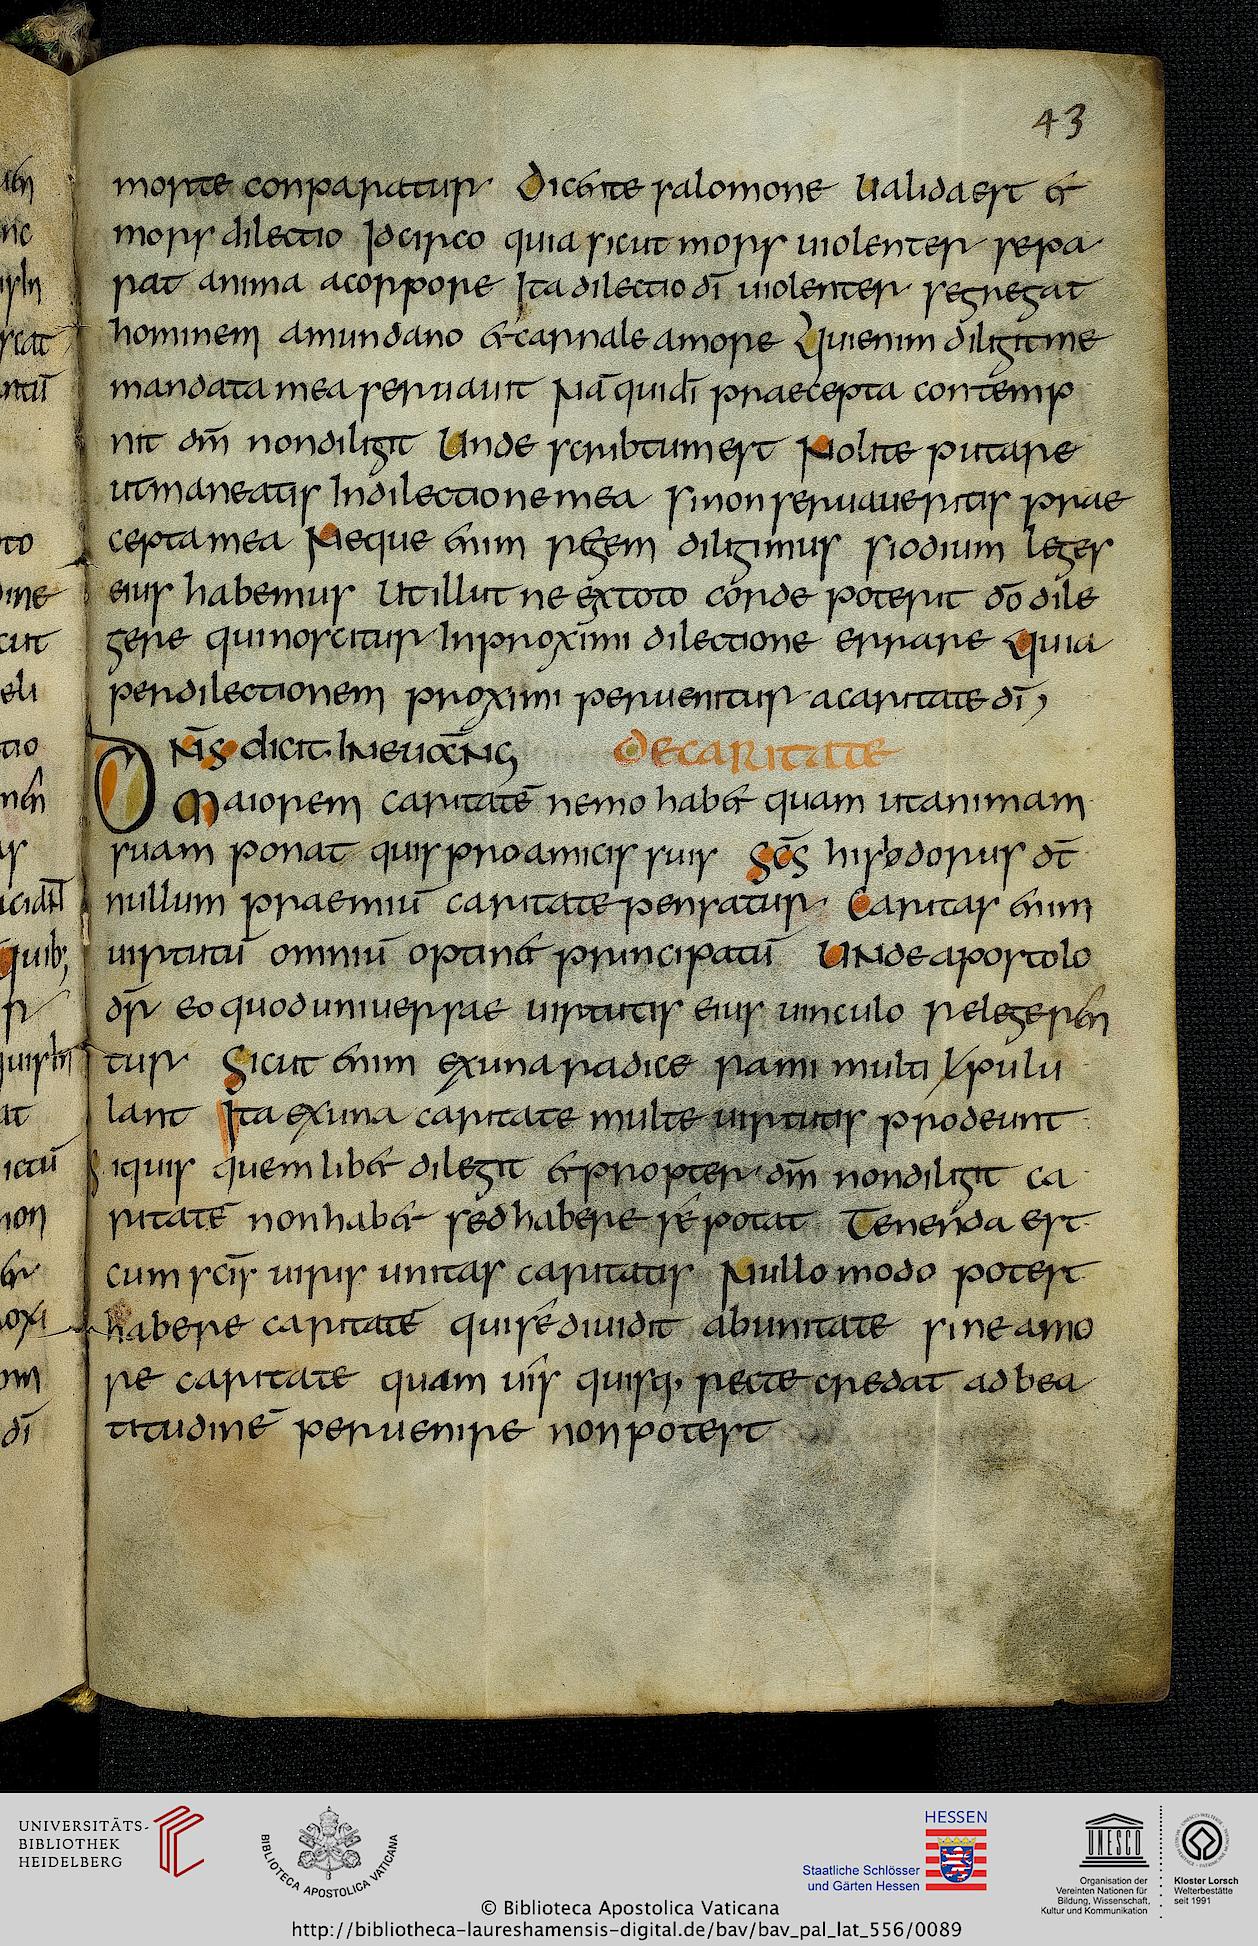 43
morte conparatur Dicente salomone Ualida est et
mors dilectio Idcirco quia sicut mors uiolenter sepa
rat anima a corpore Ita dilectio dī uiolenter segregat
hominem a mundano et carnale amore Qui enim diligit me
mandata mea seruauit Nā qui dī praecepta contemp
nit dm̄ non diligit Unde scribtum est Nolite putare
ut maneatis In dilectione mea si non seruaueritis prae
cepta mea Neque enim regem diligimus si odium leges
eius habemus Ut illut ne ex toto corde poterit dō dile
gere qui noscitur In proximi dilectione errare Quia
per dilectionem proximi peruenitur a caritate dī,
DN̄S dicit IN euāNG De caritate
Maiorem caritatē nemo habet quam ut animam
suam ponat quis pro amicis suis Sc̄s hisodorus dt̄
nullum praemiū caritate pensatur Caritas enim
uirtutū omniū optinet principatū UNde apostolo
dr̄ eo quod uniuersae uirtutis eius uinculo relegeren
tur Sicut enim ex una radice rami multi pulu
lant Ita ex una caritate multe uirtutis prodeunt
Siquis quem libet dilegit et propter dm̄ non diligit ca
ritatē non habet sed habere sē potat Tenenda est
cum sc̄is uirus unitas caritatis Nullo modo potest
habere caritatē qui sē diuidit ab unitate sine amo
re caritate quam uīs quisq; recte credat ad bea
titudinē peruenire non potest
UNIVERSITÄTS-
BIBLIOTHEK
HEIDELBERG
BIBLIOTECA APOSTOLICA VATICANA
HESSEN
Staatliche Schlösser
und Gärten Hessen
UNESCO
Organisation der
Vereinten Nationen für
Bildung, Wissenschaft,
Kultur und Kommunikation
Kloster Lorsch
Welterbestätte
seit 1991
© Biblioteca Apostolica Vaticana
http://bibliotheca-laureshamensis-digital.de/bav/bav_pal_lat_556/0089